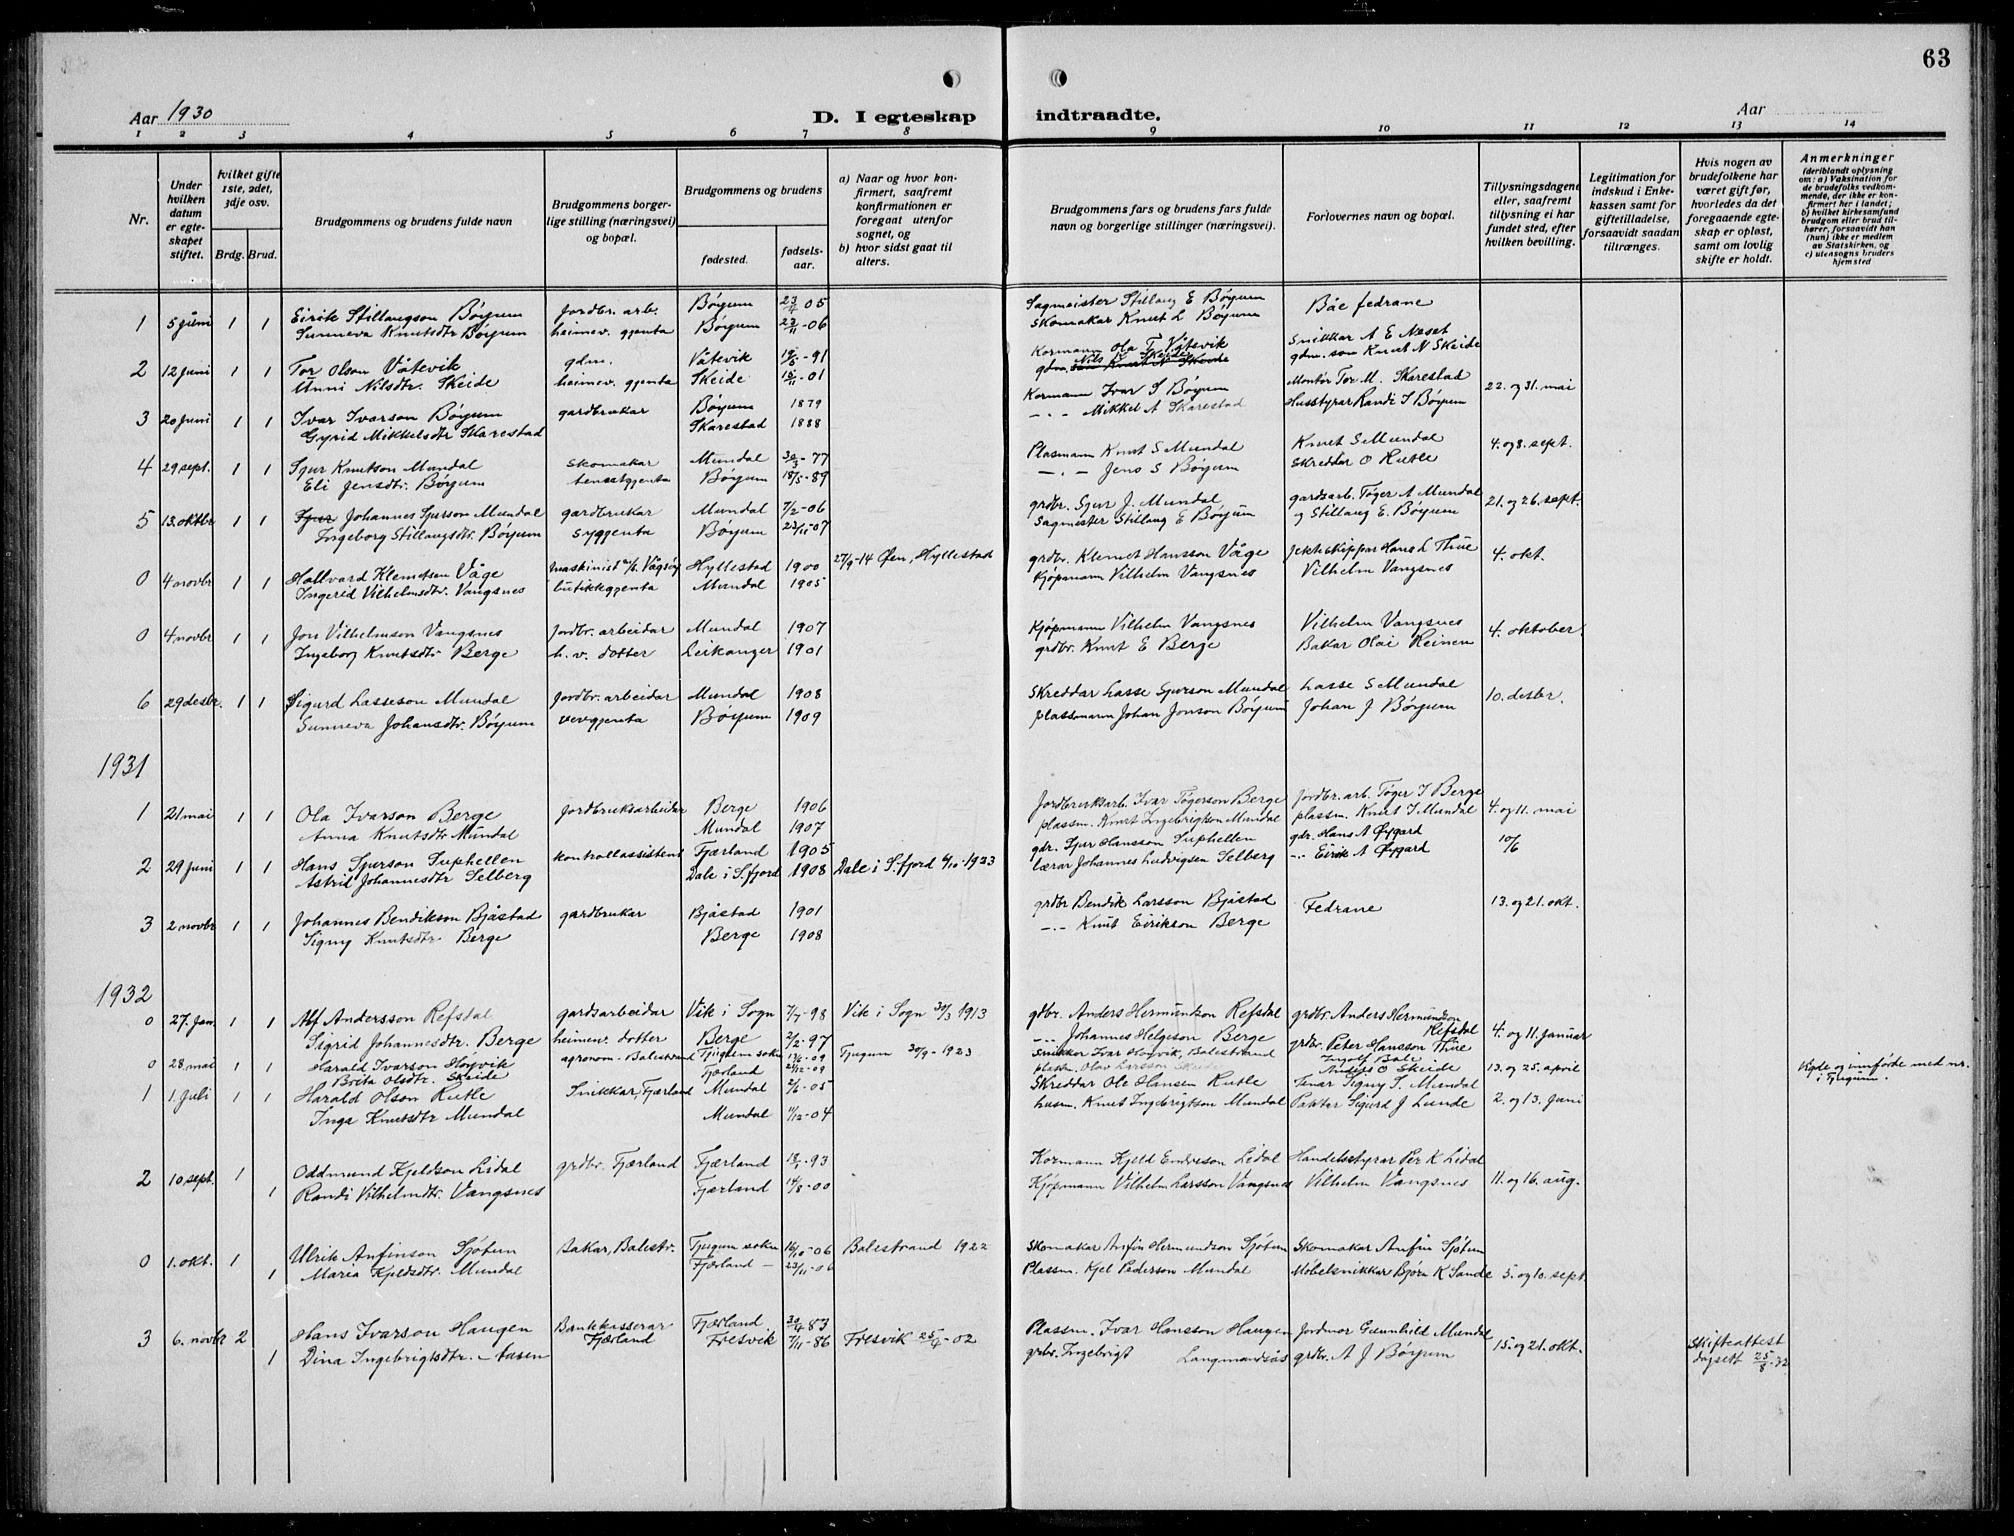 63
Aar 1930
D. I egteskap indtraadte.
Aar
1 2 3 4 5 6 7 8 9 10 11 12 13 14
Nr.
Under hvilken datum er egteskapet stiftet.
hvilket gifte 1ste, 2det, 3dje osv.
Brdg. Brud.
Brudgommens og brudens fulde navn
Brudgommens borgerlige stilling (næringsvei) og bopæl.
Brudgommens og brudens
fødested.
fødselsaar.
a) Naar og hvor konfirmert, saafremt konfirmationen er foregaat utenfor sognet, og
b) hvor sidst gaat til alters.
Brudgommens fars og brudens fars fulde navn og borgerlige stillinger (næringsvei).
Forlovernes navn og bopæl.
Tillysningsdagene eller, saafremt tillysning ei har fundet sted, efter hvilken bevilling.
Legitimation for indskud i Enkekassen samt for giftetilladelse, forsaavidt saadan tiltrænges.
Hvis nogen av brudefolkene har været gift før, hvorledes da det foregaaende egteskap er opløst, samt om lovlig skifte er holdt.
Anmerkninger
(deriblandt oplysning om: a) Vaksination for de brudefolks vedkommende, der ikke er konfirmert her i landet; b) hvilket kirkesamfund brudgom eller brud tilhører, forsaavidt han (hun) ikke er medlem av Statskirken, og c) utensogns bruders hjemsted
1 5 juni 1 1 Eirik Stillaugson Bøyum jordbr. arb. Bøyum 23/4 05 Sagmeister Stillaug E Bøyum Båe fedrane
Sunneva Knutsdtr Bøyum heimev. gjenta Bøyum 23/11-06 Skomakar Knut L Bøyum
2 12 juni 1 1 Tor Olson Våtevik gdm. Våtevik 19/5-91 Kormann Ola T Våtevik Snikkar A E Neset
Unni Nilsdtr. Skeide heimev. gjenta Skeide 15/11-01 gdm. Nils K Skeide gdm. son Knut N Skeide
3 20 juni 1 1 Ivar Ivarson Bøyum gardbrukar Bøyum 1879 Kormann Ivar S Bøyum Montør Tor M. Skarestad 22. og 31. mai
Gyrid Mikkelsdtr Skarestad Skarestad 1888 -"- Mikkel A Skarestad Husstyrar Randi I Bøyum
4 29 sept. 1 1 Sjur Knutson Mundal skomakar Mundal 30/3-77 Plasmann Knut S Mundal Knut S Mundal 4. og 8. sept.
Eli Jensdtr. Bøyum tenestgjenta Bøyum 18/5-89 -"- Jens S Bøyum Skreddar O Rutle
5 13. oktbr 1 1 Johannes Sjurson Mundal gardbrukar Mundal 7/2-06 grdbr. Sjur J. Mundal gardsarb. Tøger A Mundal 21. og 26. sept.
Ingeborg Stillaugsdtr. Bøyum syggenta Bøyum 23/11-07 Sagmeister Stillaug E Bøyum og Stillaug E. Bøyum
0 4 novbr 1 1 Hallvard Klemetsen Våge maskinist a/b. Vågsøy Hyllestad 1900 27/9-14 Øen, Hyllestad grdbr. Klemet Hansson Våge Jekteskippar Hans L Thue 4. okt.
Ingerid Vilhelmsdtr. Vangsnes butikkgjenta Mundal 1905 Kjøpmann Vilhelm Vangsnes Vilhelm Vangsnes
0 4 novbr 1 1 Jon Vilhelmson Vangsnes Jordbr. arbeidar Mundal 1907 Kjøpmann Vilhelm Vangsnes Vilhelm Vangsnes 4. oktober.
Ingeborg Knutsdtr Berge h. v. dotter Leikanger 1901 grdbr. Knut E Berge Bakar Olai Reinen
6 29 desbr. 1 1 Sigurd Lasseson Mundal Jordbr. arbeidar Mundal 1908 Skreddar Lasse Sjurson Mundal Lasse S Mundal 10. desbr.
Sunneva Johansdtr. Bøyum vevgjenta Bøyum 1909 plassmann Johan Jonson Bøyum Johan J Bøyum
1931
1 21 mai 1 1 Ola Ivarson Berge Jordbruksarbeidar Berge 1906 Jordbruksarb. Ivar Tøgerson Berge Jordbr. arb. Tøger I Berge 4. og 11. mai
Anna Knutsdtr Mundal Mundal 1907 plassm. Knut Ingebrigtson Mundal plassm. Knut I Mundal
2 29 juni 1 1 Hans Sjurson Suphellen kontrollassistent Fjærland 1905 gdr. Sjur Hansson Suphellen gdr. Hans A Øygard 10/6
Astrid Johannesdtr Selberg Dale i S.fjord 1908 Dale i S.fjord 4/10-1923 lærar Johannes Ludvigsen Selberg -"- Eirik A Øygard
3 2 novbr 1 1 Johannes Bendikson Bjåstad gardbrukar Bjåstad 1901 grdbr Bendik Larsson Bjåstad Fedrane 13. og 21. okt.
Signy Knutsdtr. Berge Berge 1908 -"- Knut Eirikson Berge
1932
0 27. jan. 1 1 Alf Andersson Refsdal gardsarbeidar Vik i Sogn 7/7-98 Vik i Sogn 30/3 1913 gdbr. Anders Hermundson Refsdal grdbr. Anders Hermundson Refsdal 4. og 11. januar
Sigrid Johannesdtr. Berge heimev. dotter Berge 2/2-97 -"- Johannes Helgeson Berge grdbr. Peter Hansson Thue
0 28. mai 1 1 Harald Ivarson Høyvik agronom. Balestrand Tjugum sokn 13/6-09 Tjugum 30/9-1923 Snikkar Ivar Høyvik, Balestrand Ingolf Bale 13. og 25. april
Brita Olsdtr. Skeide Fjærland 24/12-09 plassm. Olav Larsson Skeide Anders O Skeide
1 1. juli 1 1 Harald Olson Rutle Snikkar, Fjærland Mundal 2/6-05 Skreddar Ole Hansen Rutle Signy S. Mundal 2. og 13. juni
Inga Knutsdtr Mundal Mundal 11/12-04 husm. Knut Ingebrigtson Mundal Paktar Sigurd J Lunde
i Tjugum.
2 10 sept. 1 Oddmund Kjeldson Lidal grdbr. Fjærland Fjærland 12/1-93 Kormann Kjeld Endreson Lidal Handelsstyrar Per K Lidal
1 Randi Vilhelmdtr. Vangsnes Fjærland 14/8-00 Kjøpmann Vilhelm Larsson Vangsnes Vilhelm Vangsnes 11. og 16. aug.
0 1. okt. 1 Ulrik Anfinson Sjøtun Bakar, Balestr. Tjugum sokn 16/10-06 Balestrand 1922 Skomakar Anfin Hermundson Sjøtun Skomakar Anfin Sjøtun
1 Maria Kjeldsdtr. Mundal Fjærland - 23/11-06 Plassm. Kjel Pederson Mundal Møbelsnikkar Bjørn K Sande 5. og 10. sept.
3 6. novbr 2 Hans Ivarson Haugen Bankkasserar Fjærland 30/4 83 Plassm. Ivar Hansson Haugen Jordmor Gunnhild Mundal 15. og 21. okt. Skifteattest
1 Dina Ingebrigtsdtr. - Aasen Fjærland Fresvik 7/11-86 Fresvik 25/4-02 grdbr. Ingebrigt Langmandsås grdbr. A J Bøyum dagsett 25/8-32